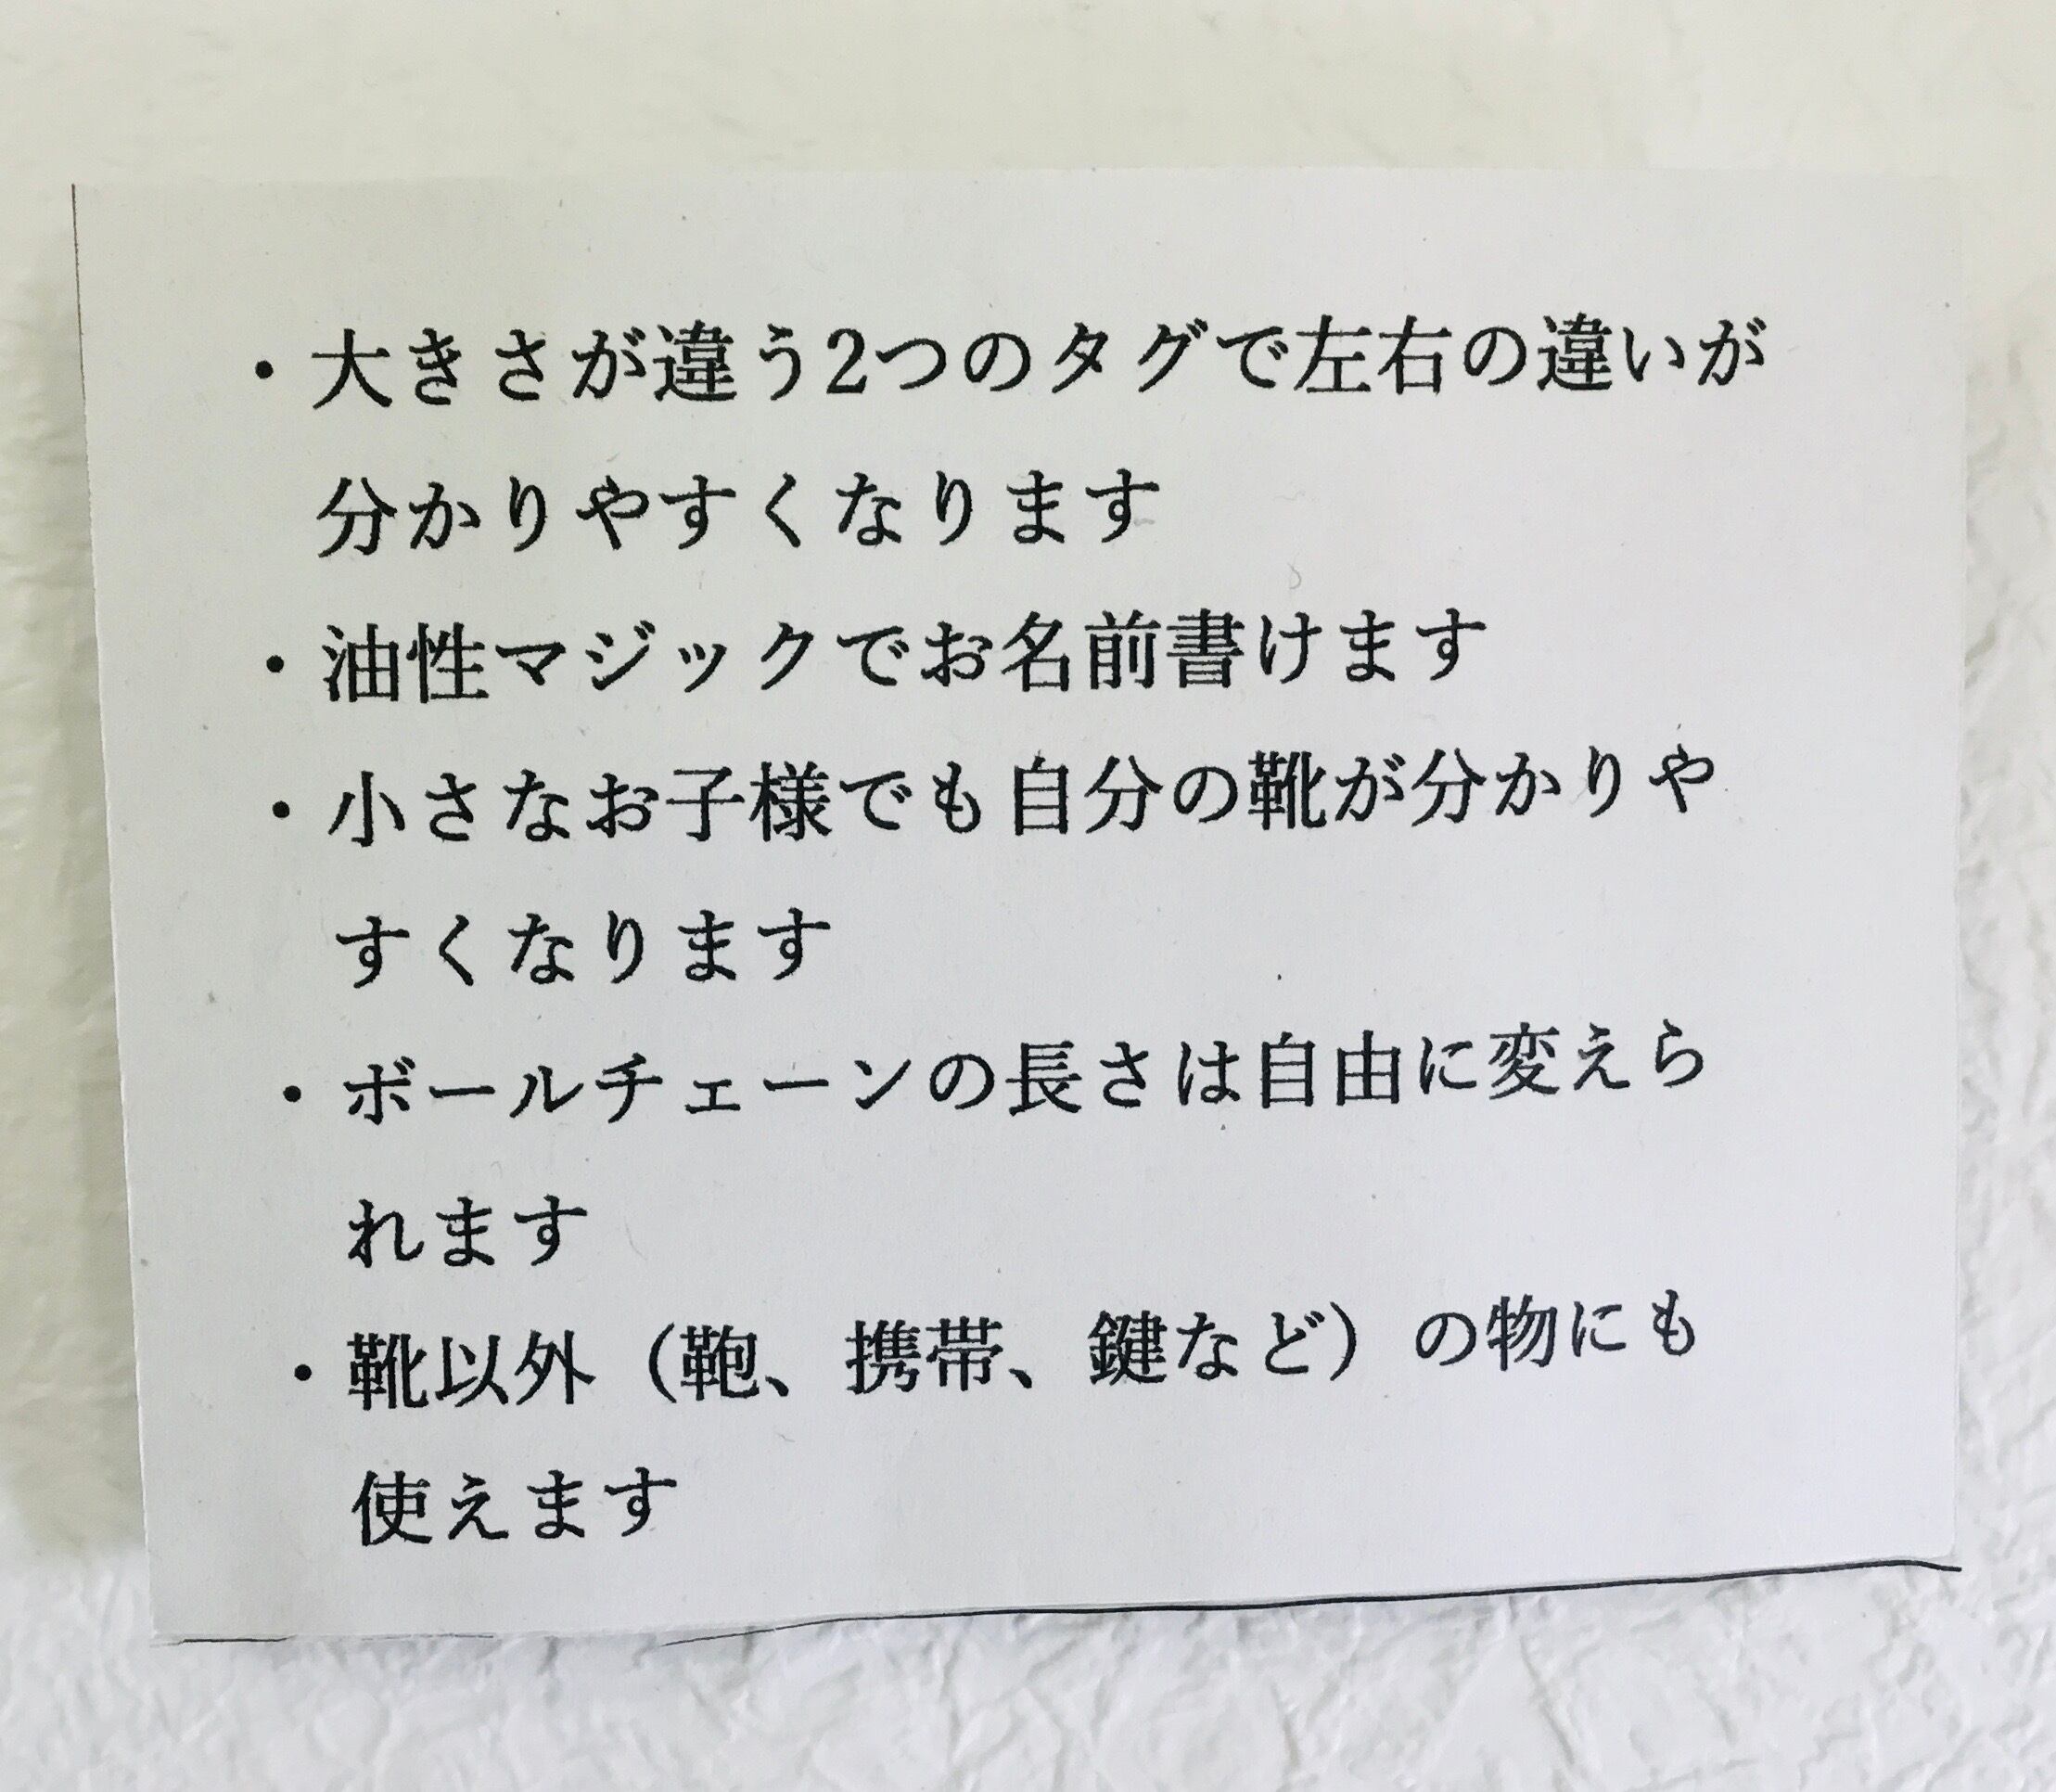 ・大きさが違う2つのタグで左右の違いが
分かりやすくなります
・油性マジックでお名前書けます
・小さなお子様でも自分の靴が分かりや
すくなります
・ボールチェーンの長さは自由に変えら
れます
・靴以外（鞄、携帯、鍵など）の物にも
使えます